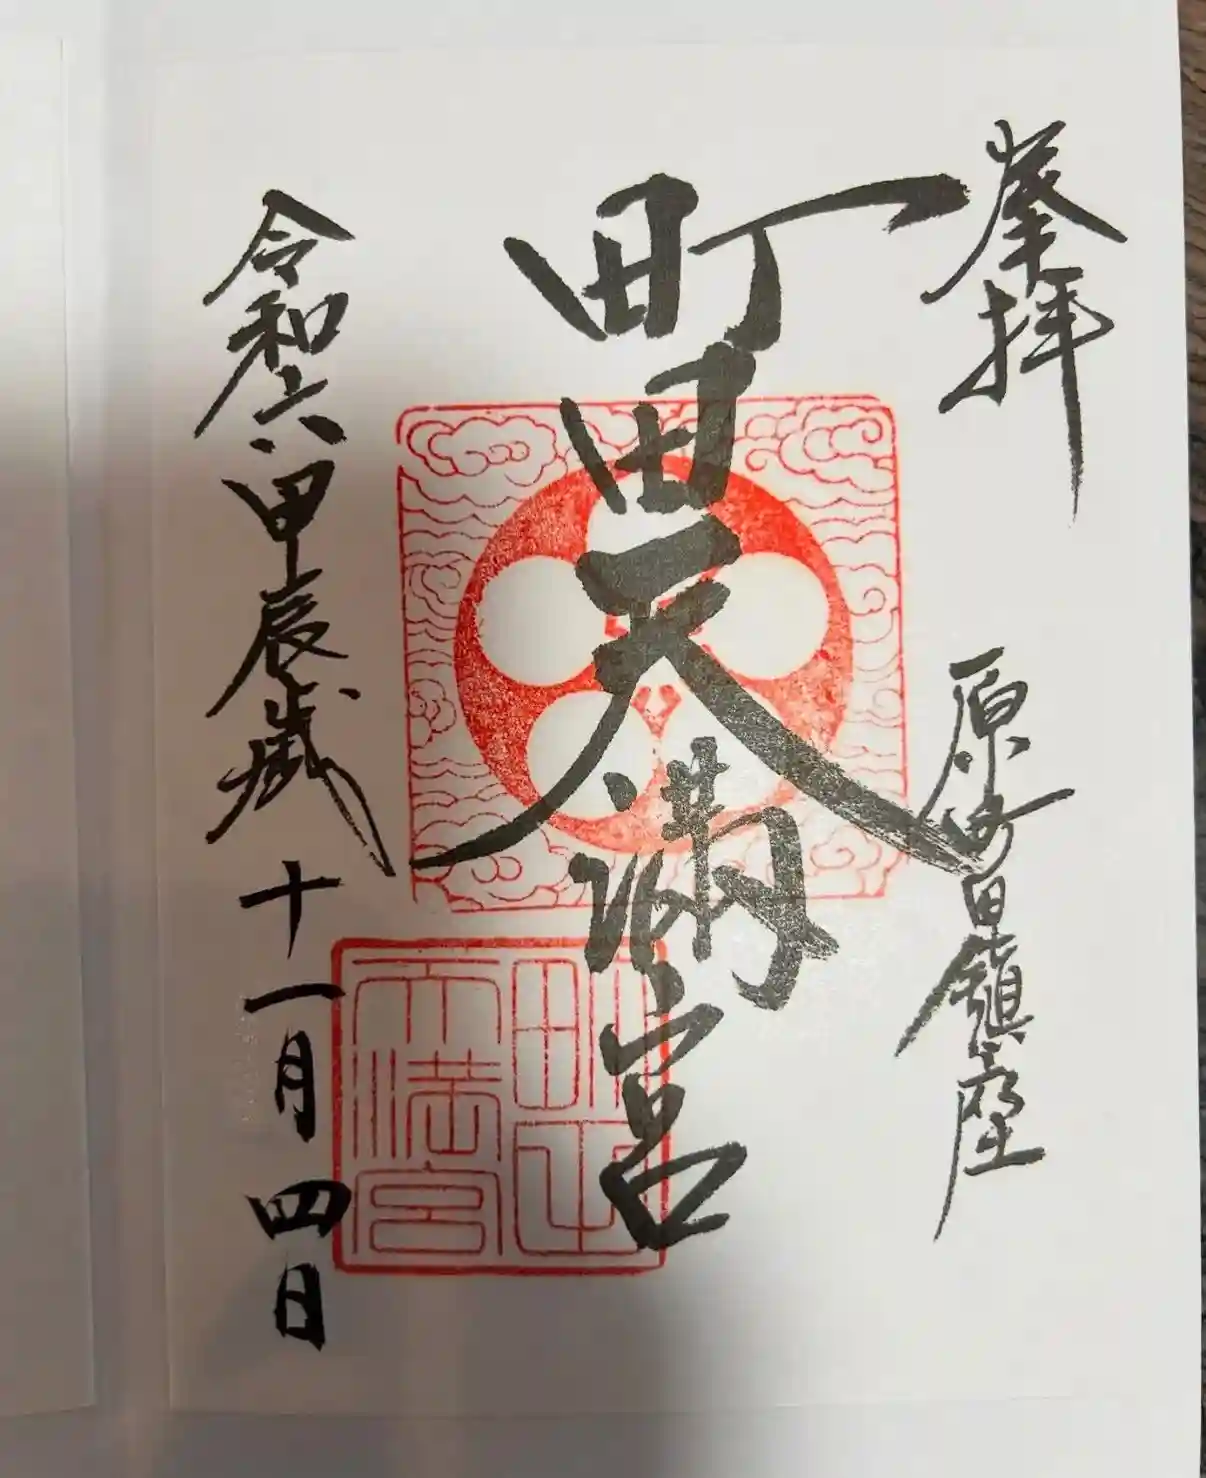 奉拝
原町田鎮座
町田天満宮
町田
天満宮
令和六甲辰歳十一月四日